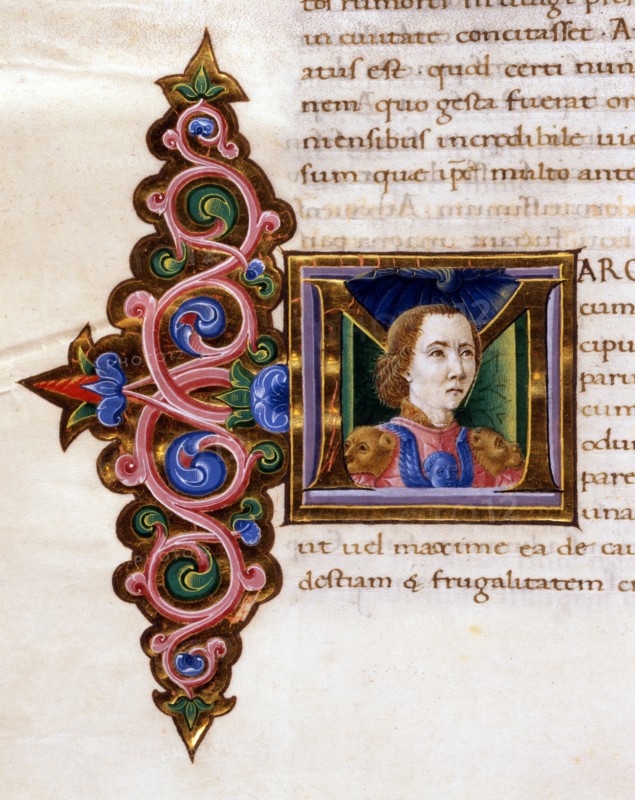 in ciuitate concitasset. A
atus est. quod certi nun
nem quo gesta fuerat on
mensibus incredibile
sum quae ipse multo ante
MARC
cum
cipu
paru
cum
odu
pare
una
ut uel maxime ea de cau
destiam & frugalitatem